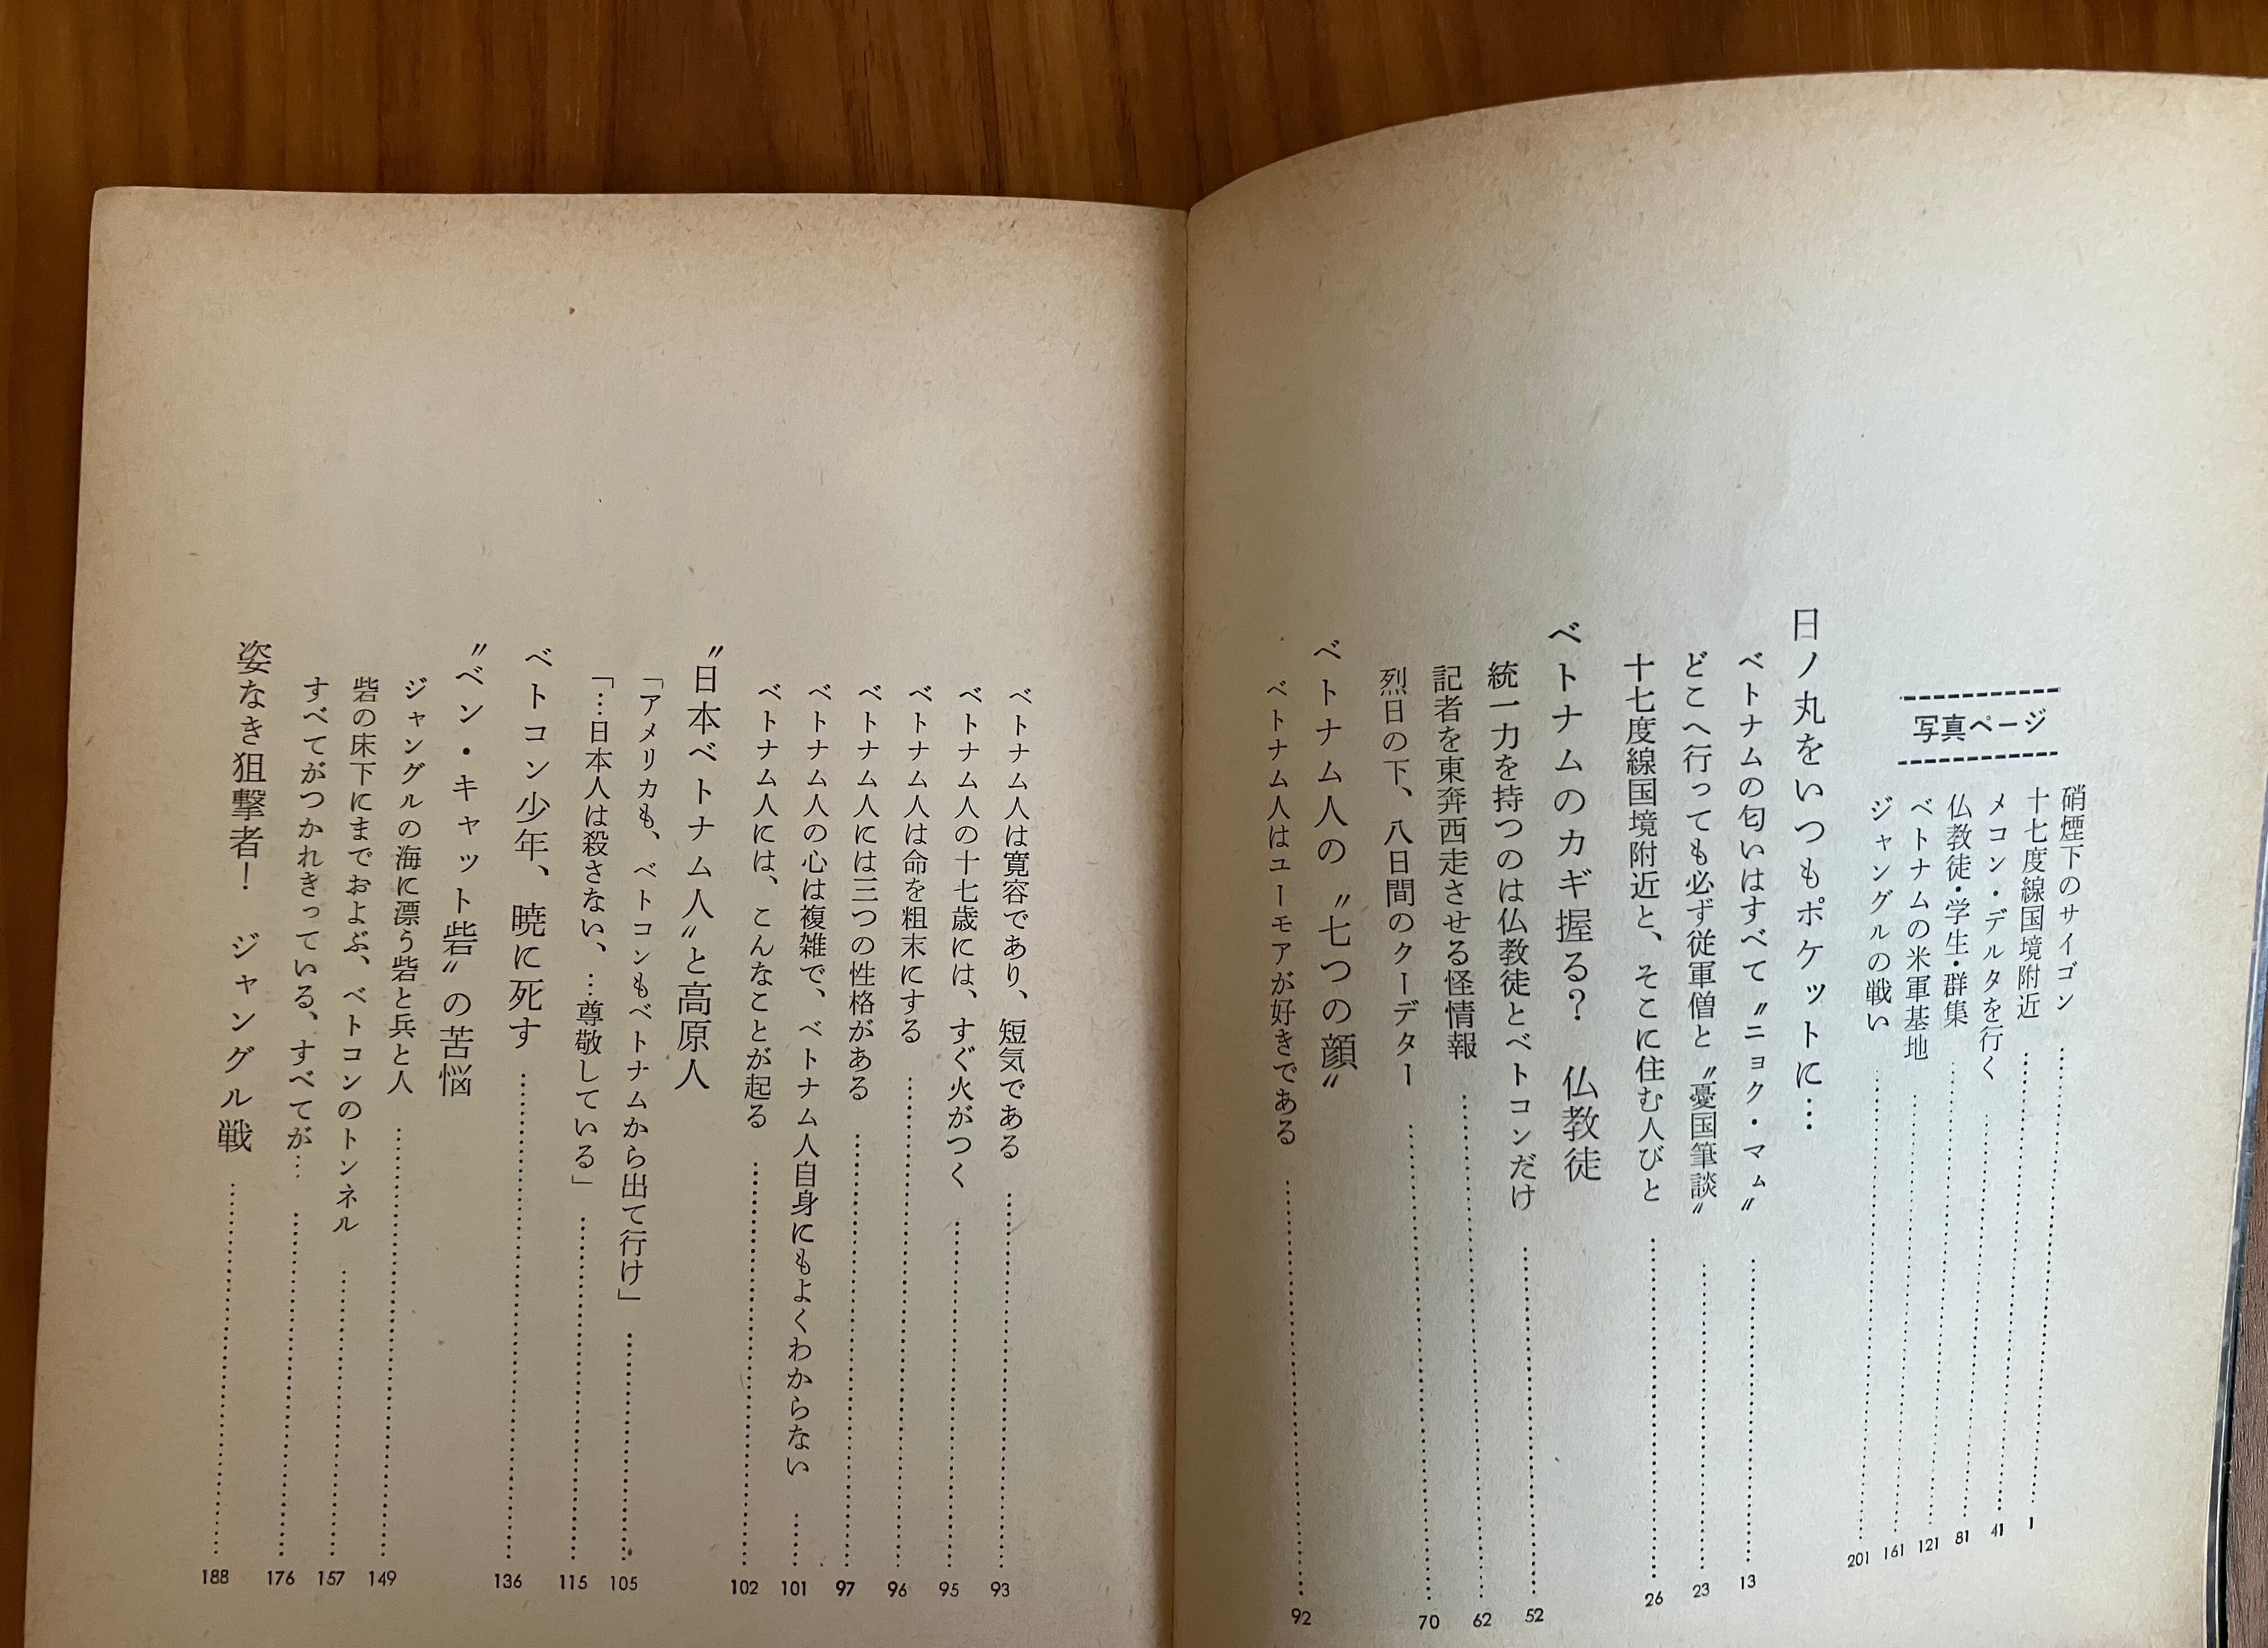 写真ページ
硝煙下のサイゴン……1
十七度線国境附近……41
メコン・デルタを行く……81
仏教徒・学生・群集……121
ベトナムの米軍基地……161
ジャングルの戦い……201
日ノ丸をいつもポケットに…
ベトナムの匂いはすべて〝ニョク・マム〟……13
どこへ行っても必ず従軍僧と〝憂国筆談〟……23
十七度線国境附近と、そこに住む人びと……26
ベトナムのカギ握る？　仏教徒
統一力を持つのは仏教徒とベトコンだけ……52
記者を東奔西走させる怪情報……62
烈日の下、八日間のクーデター……70
ベトナム人の〝七つの顔〟
ベトナム人はユーモアが好きである……92
ベトナム人は寛容であり、短気である……93
ベトナム人の十七歳には、すぐ火がつく……95
ベトナム人は命を粗末にする……96
ベトナム人には三つの性格がある……97
ベトナム人の心は複雑で、ベトナム人自身にもよくわからない……101
ベトナム人には、こんなことが起る……102
〝日本ベトナム人〟と高原人
「アメリカも、ベトコンもベトナムから出て行け」……105
「…日本人は殺さない、…尊敬している」……115
ベトコン少年、暁に死す……136
〝ベン・キャット砦〟の苦悩
ジャングルの海に漂う砦と兵と人……149
砦の床下にまでおよぶ、ベトコンのトンネル……157
すべてがつかれきっている、すべてが………176
姿なき狙撃者！　ジャングル戦……188